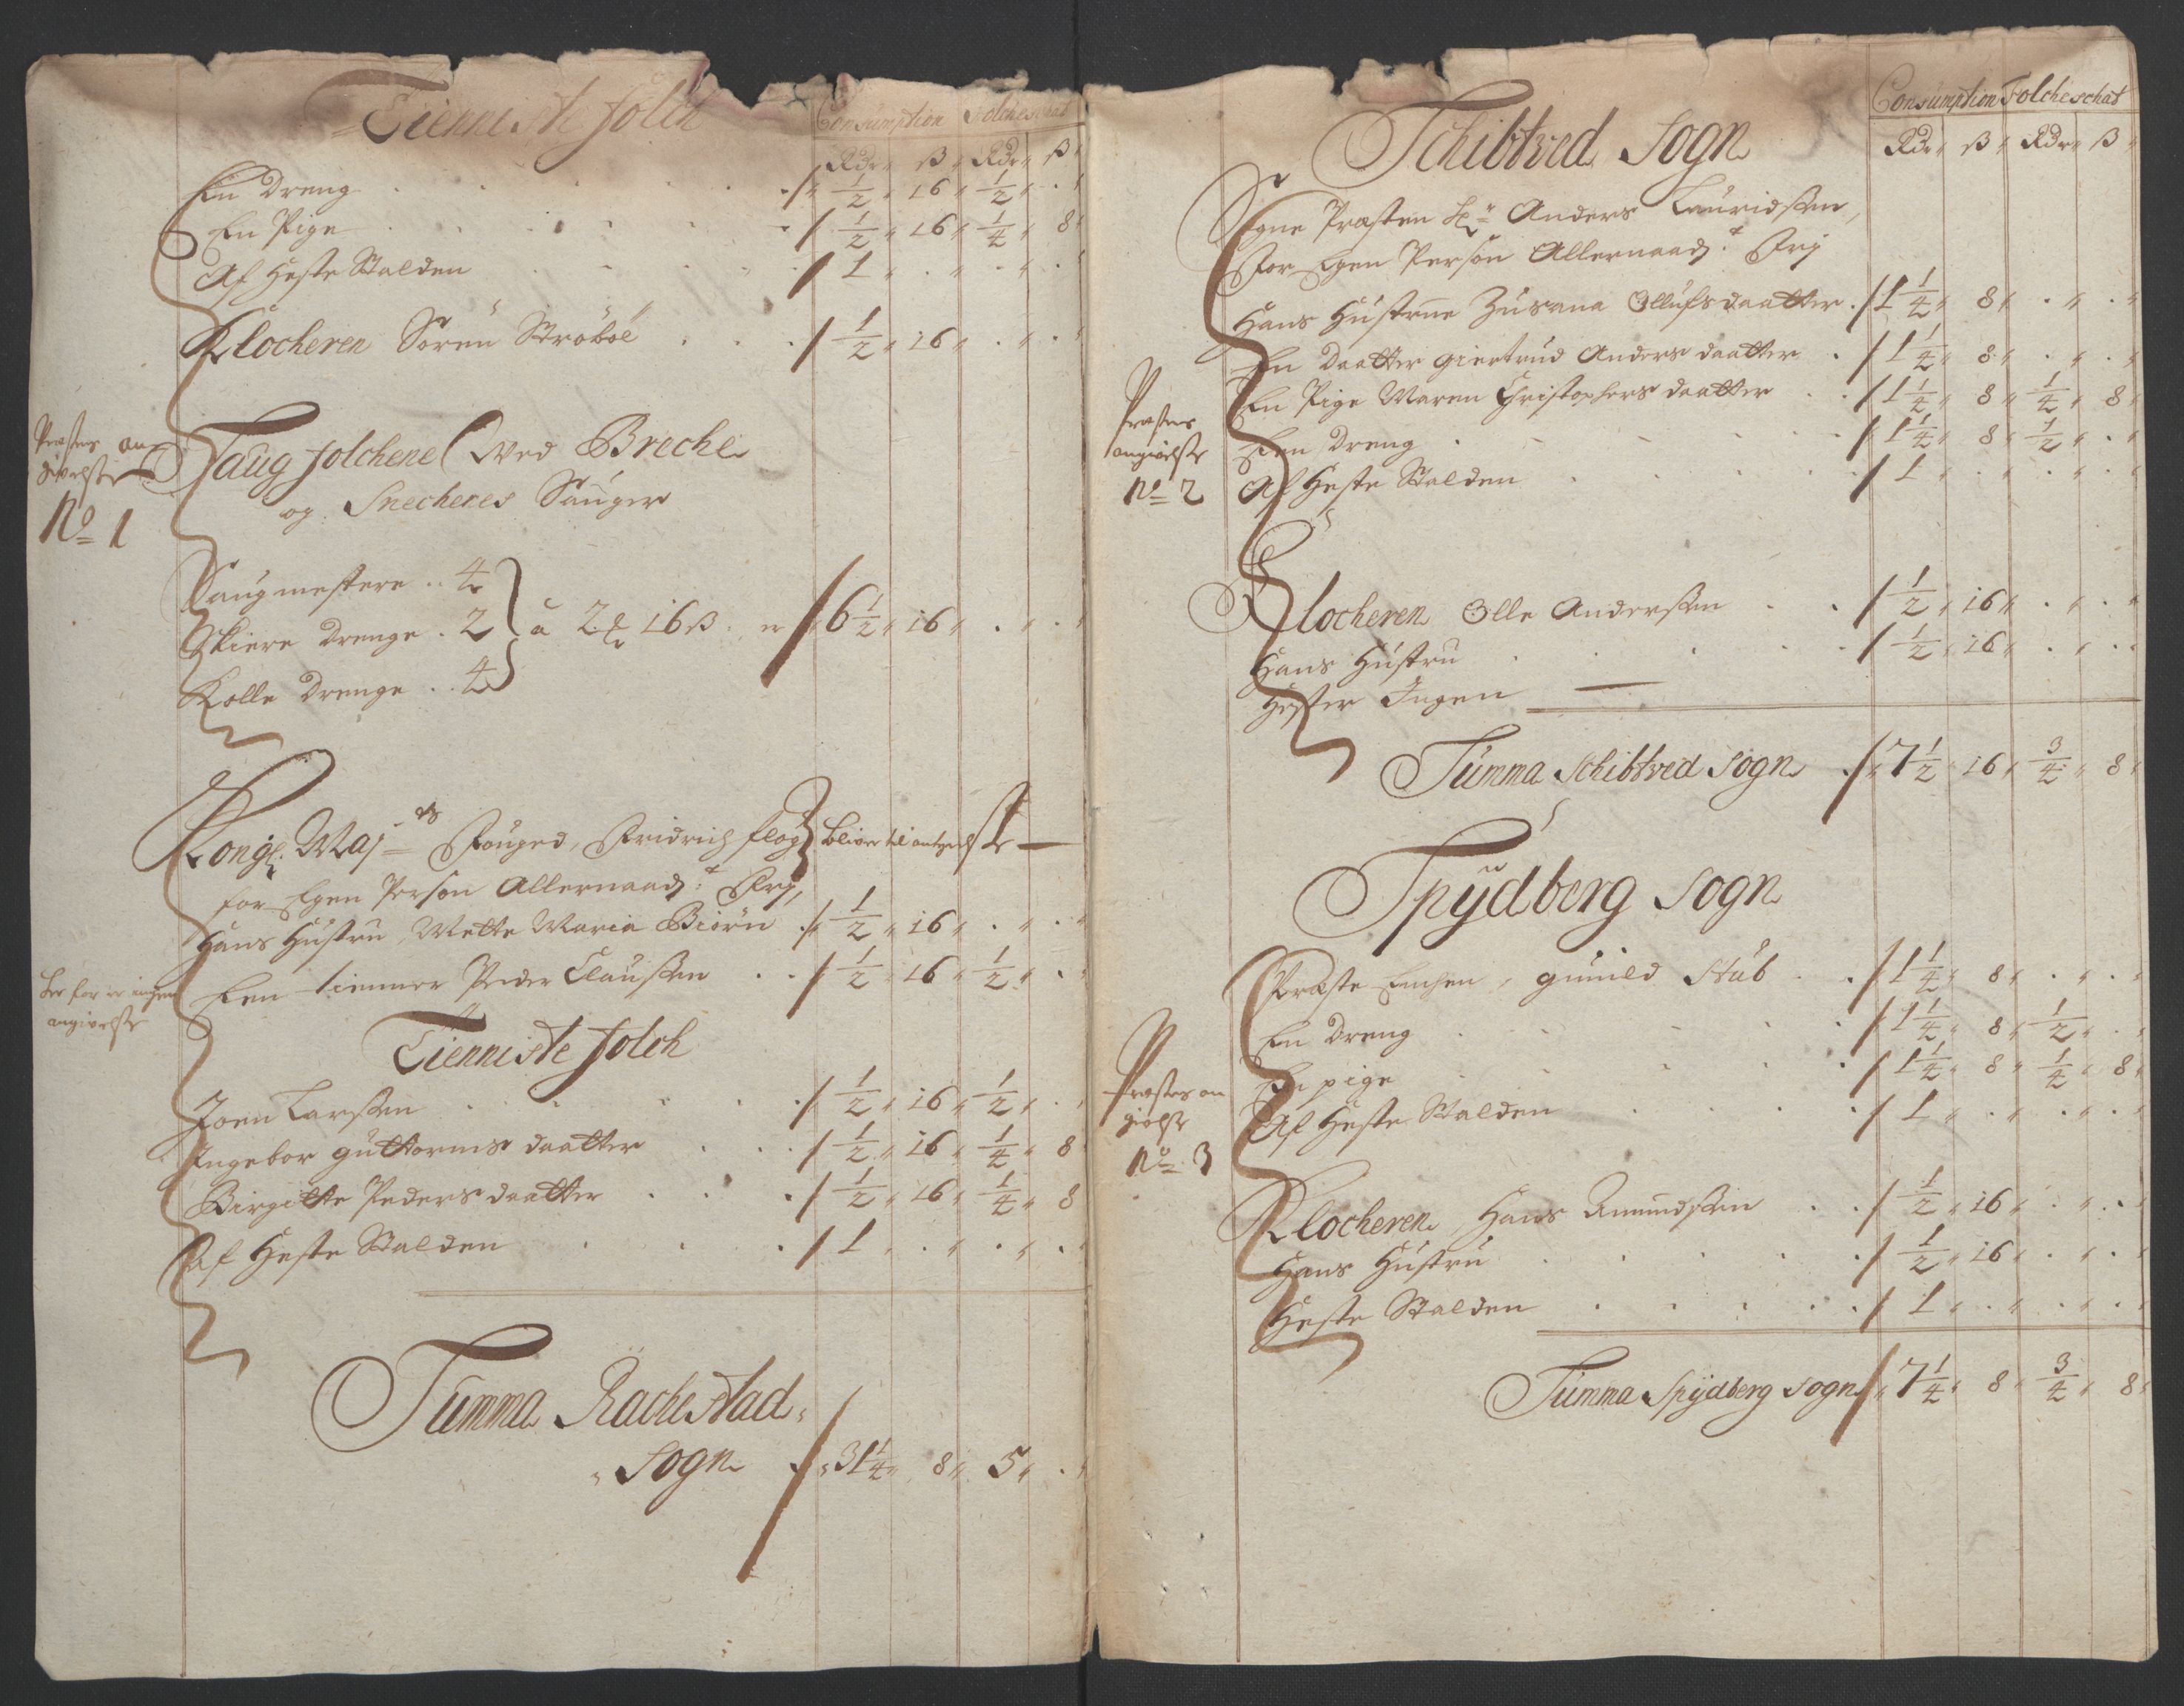 Tienniste folch
Consumption Folcheschat
Rdr ß Rdr ß
En Dreng . . . ½ 16 ½ .
En Pige . . . ½ 16 ¼ 8
Af Heste Stalden . . . 1 . . .
Klocheren Sören Ströböl . . . ½ 16 . .
Præstens an
givelse
No 1
Saug folchene Ved Breche
og Snecheres Sauger
Saugmestere .. 4
Skiere Drenge . 2 à 2 16 ß er 6½ 16 . .
Kolle Drenge .. 4
Kongl: Maj Fouged, Fridrich flog bliver til
for Egen Person Allernaad: Frj,
Hans Hustru Mette Maria Biörn . ½ 16 . .
Een tienner Peder Claussen . . ½ 16 ½ .
Her for er ingen
angivelse
Tienniste folch
Joen Larssen . . . ½ 16 ½ .
Ingebor Guttorms daatter . . . ½ 16 ¼ 8
Birgitte Peders daatter . . . ½ 16 ¼ 8
Af Heste Stalden . . . 1 . . .
Summa Rachestad
Sogn . 31¼ 8 5 .
Schibtved Sogn
Consumption Folcheschat
Rdr ß Rdr ß
Sogne Præsten Hr Anders Lauridssen,
For Egen Person Allernaad: Frj
Hans Hustrue Zusana Ollufs daatter . 1¼ 8 . .
En Daatter Giertrud Anders daatter . 1¼ 8 . .
En Pige Maren Christophers daatter . . 1¼ 8 ¼ 8
Een Dreng . . . 1¼ 8 ½ .
Af Heste Stalden . . . 1 . . .
Præstens
angivelse
No 2
Klocheren Olle Anderssen . . ½ 16 . .
Hans Hustru . . . ½ 16 . .
Hester Ingen —
Summa Schibtved Sogn . 7½ 16 ¾ 8
Spÿdberg Sogn
Præste Enchen, Gunild Stub . . 1¼ 8 . .
En Dreng . . . 1¼ 8 ½ .
En pige . . . 1¼ 8 ¼ 8
Af Heste Stalden . . . 1 . . .
Præstens an
givelse
No 3
Klocheren, Hans Amundssen . . ½ 16 . .
Hans Hustru . . . ½ 16 . .
Heste Stalden . . . 1 . . .
Summa Spÿdberg Sogn 7¼ 8 ¾ 8